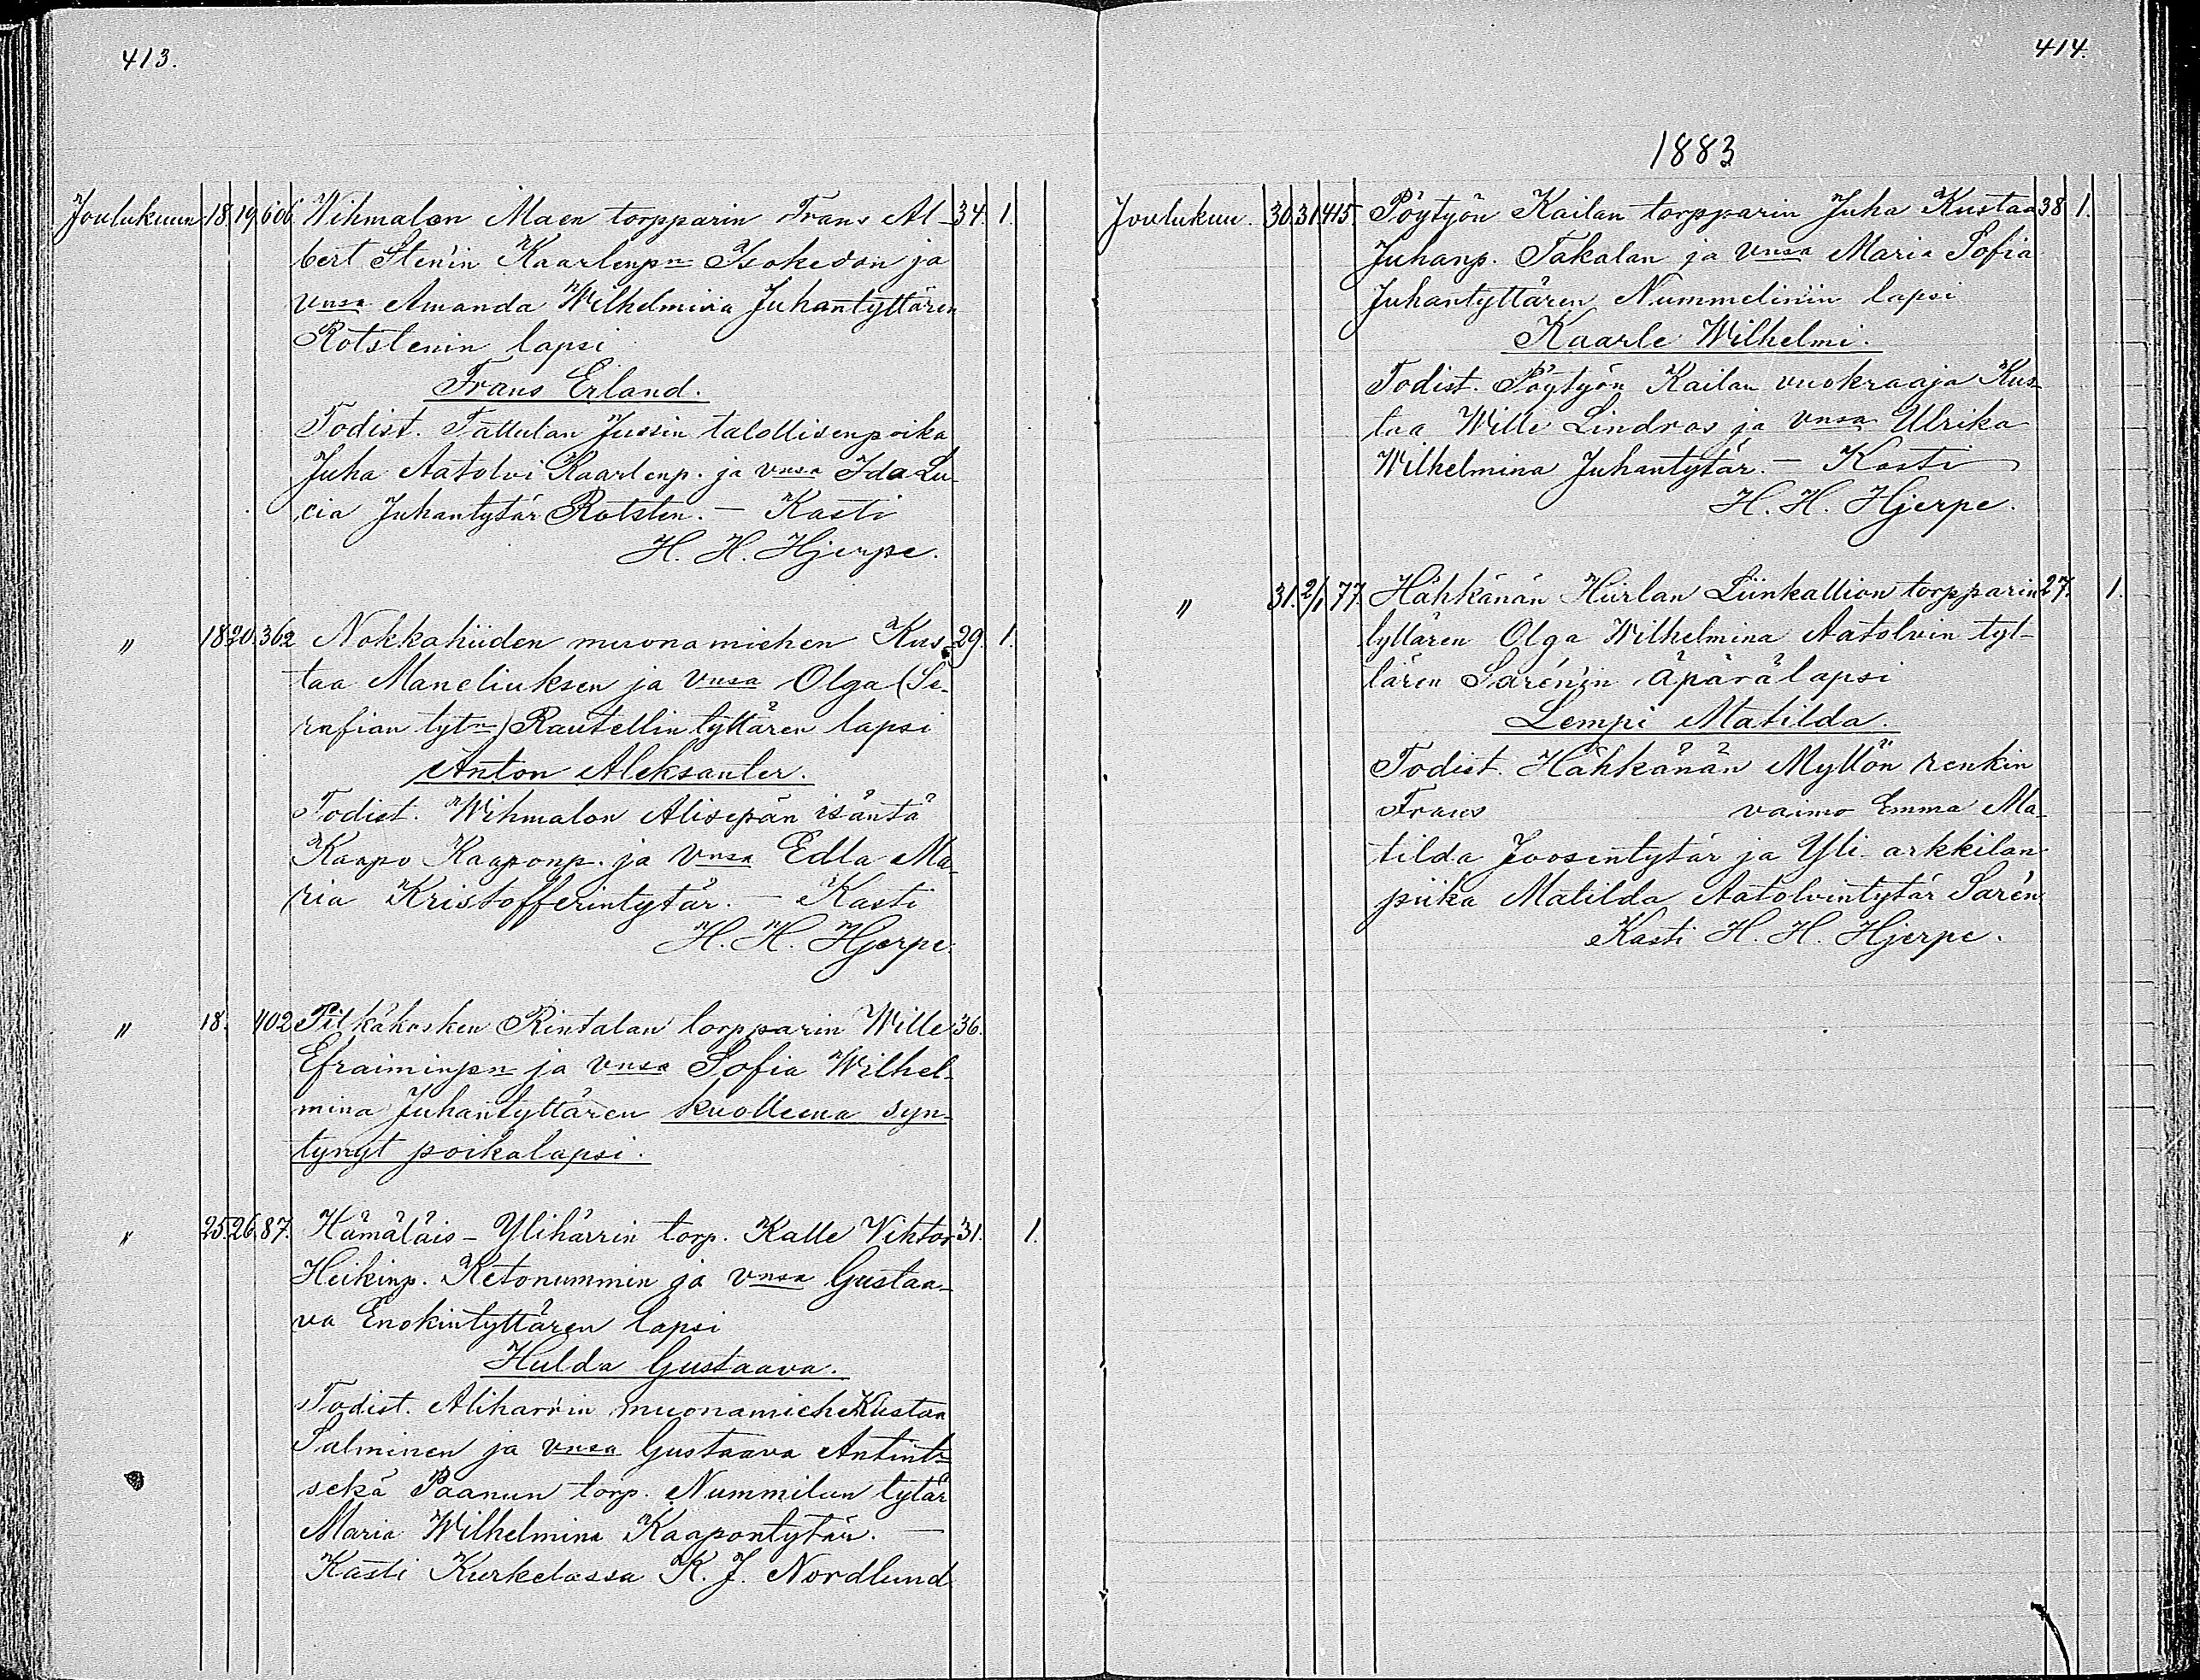 413.
Joulukuun 18. 19. 606. Wihmalon Maen torpparin Frans Al- 34. 1.
bert Sten'in Kaarlenpn Isokedon ja
vnsa Amanda Wilhelmina Juhantyttären
Rotstenin lapsi
Frans Erland.
Todist. Tattulan Jussin talollisenpoika
Juha Aatolvi Kaarlenp. ja vnsa Ida Lu-
cia Juhantytär Rotsten. — Kasti
H. H. Hjerpe.
" 18. 20. 362 Nokkahiiden muonamiehen Kus- 29. 1.
taa Maneliuksen ja vnsa Olga (Se-
rafian tytn) Rautellin tyttären lapsi
Anton Aleksanter.
Todist. Wihmalon Alisepän isäntä
Kaapo Kaaponp. ja vnsa Edla Ma-
ria Kristofferintytär. — Kasti
H. H. Hjerpe.
" 18. 402 Pitkäkosken Rintalan torpparin Wille 36.
Efraiminpn ja vnsa Sofia Wilhel-
mina Juhantyttären kuolleena syn-
tynyt poikalapsi.
" 25. 26. 87. Hämäläis-Ylihärrin torp. Kalle Vihtor 31. 1.
Heikinp. Ketonummin ja vnsa Gustaa-
va Enokintyttären lapsi
Hulda Gustaava.
Todist. Aliharrin muonamiehe Kustaa
Salminen ja vnsa Gustaava Antint.
sekä Paanun torp. Nummilan tytär
Maria Wilhelmina Kaapontytär. —
Kasti Kurkelassa K. J. Nordlund
414.
1883
Joulukuu. 30. 31. 415. Pöytyön Kailan torpparin Juha Kustaa 38 1.
Juhanp. Takalan ja vnsa Maria Sofia
Juhantyttären Nummelin'in lapsi
Kaarle Wilhelmi.
Todist. Pöytyön Kailan vuokraaja Kus-
taa Wille Lindros ja vnsa Ulrika
Wilhelmina Juhantytär. — Kasti
H. H. Hjerpe.
" 31. 2/1 77. Hähkänän Hiirlan Liinkallion torpparin 27. 1.
tyttären Olga Wilhelmina Aatolvin tyt-
tären Sarén'in äpärälapsi
Lempi Matilda.
Todist. Hähkänän Myllön renkin
Frans vaimo Emma Ma-
tilda Joosentytär ja Yli arkkilan
piika Matilda Aatolvintytär Sarén
Kasti H. H. Hjerpe.